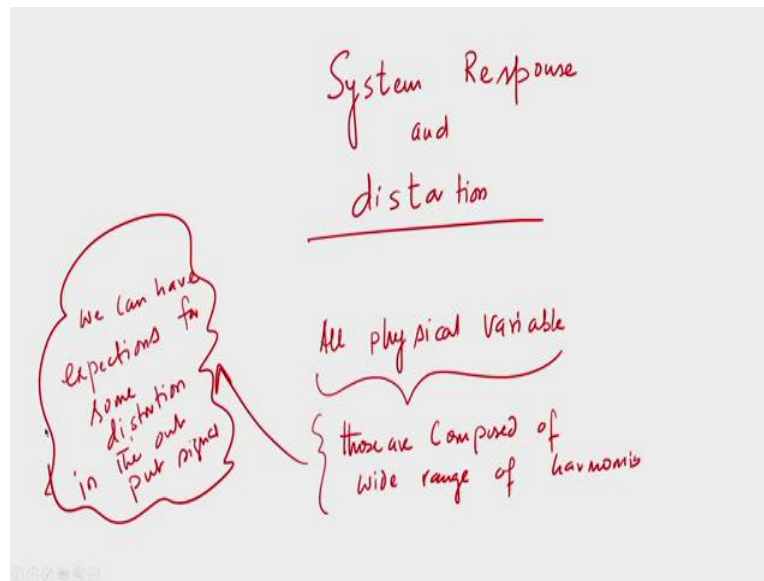 System Response
and
distortion
All physical variable
those are composed of
wide range of harmonis
we can have
expections for
some
distortion
in the out
put signal